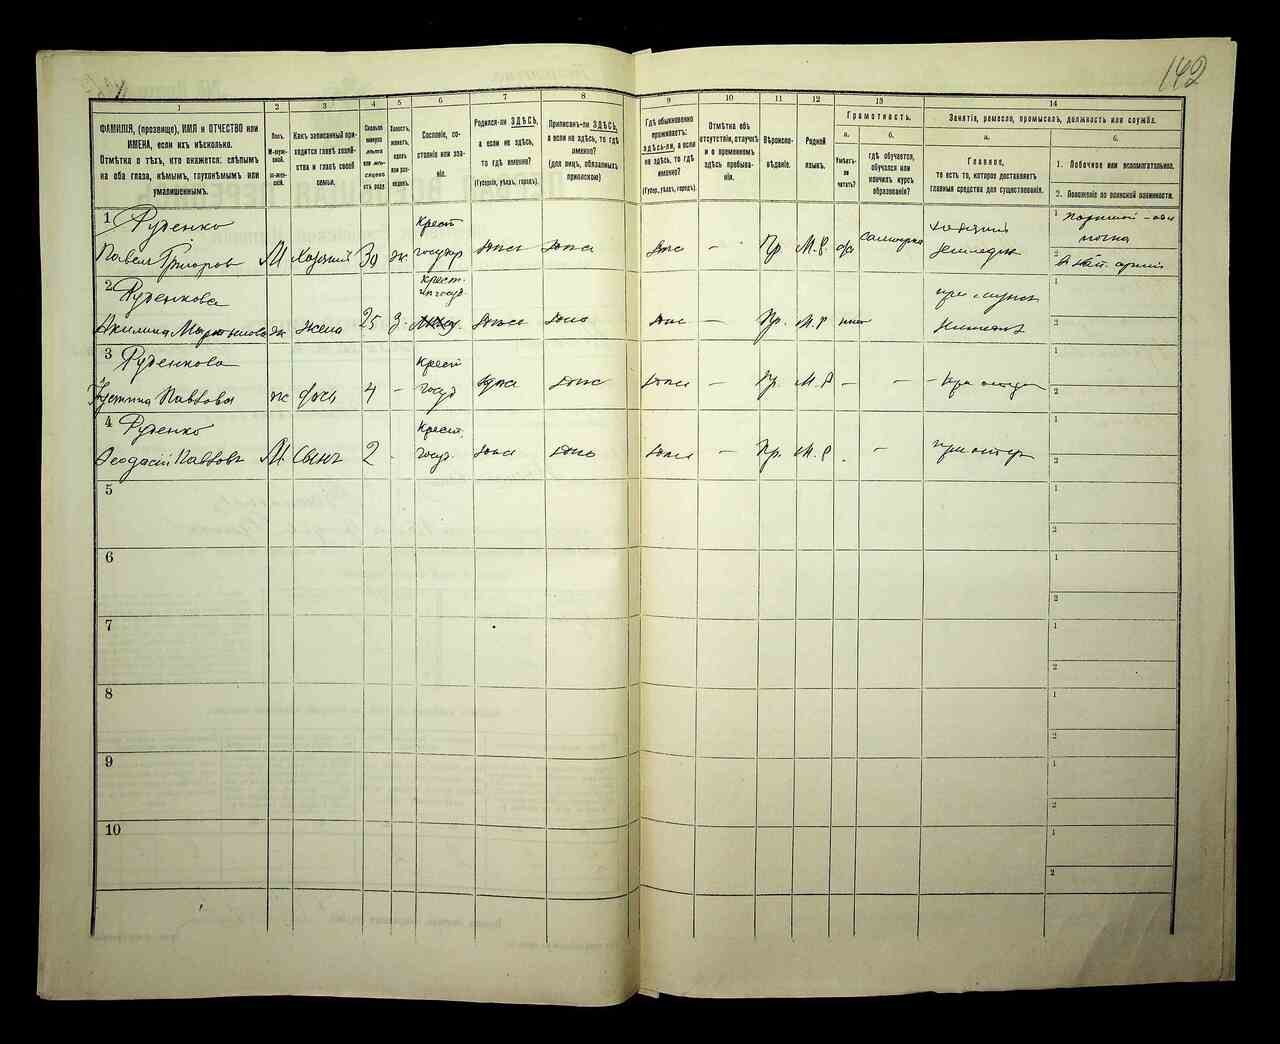 142
1
2
3
4
5
6
7
8
9
10
11
12
13
14
ФАМИЛІЯ, (прозвище), ИМЯ и ОТЧЕСТВО или
ИМЕНА, если ихъ нѣсколько.
Отмѣтка о тѣхъ, кто окажется: слѣпымъ
на оба глаза, нѣмымъ, глухонѣмымъ или
умалишеннымъ.
Полъ.
М-муж-
ской.
Ж-жен-
скій.
Какъ записанный при-
ходится главѣ хозяй-
ства и главѣ своей
семьи.
Сколько
минуло
лѣтъ
или мѣ-
сяцевъ
отъ роду
Холостъ,
женатъ,
вдовъ
или раз-
веденъ.
Сословіе, со-
стояніе или зва-
ніе.
Родился-ли ЗДѢСЬ,
а если не здѣсь,
то гдѣ именно?
(Губернія, уѣздъ, городъ).
Приписанъ-ли ЗДѢСЬ,
а если не здѣсь, то гдѣ
именно?
(для лицъ, обязанныхъ
припискою)
Гдѣ обыкновенно
проживаетъ:
здѣсь-ли, а если
не здѣсь, то гдѣ
именно?
(Губер., уѣздъ, городъ).
Отмѣтка объ
отсутствіи, отлучкѣ
и о временномъ
здѣсь пребыва-
ніи.
Вѣроиспо-
вѣданіе.
Родной
языкъ.
Грамотность.
а.
б.
Умѣетъ-
ли
читать?
гдѣ обучается,
обучался или
кончилъ курсъ
образованія?
Занятіе, ремесло, промыселъ, должность или служба.
а.
б.
Главное,
то есть то, которое доставляетъ
главныя средства для существованія.
1. Побочное или вспомогательное.
2. Положеніе по воинской повинности.
1
Руденко
Павелъ Григоров
М
Хозяинъ
30
ж
Крест
государ
здѣсь
здѣсь
здѣсь
—
Пр
М.Р
самоучка
хозяинъ
земледѣл
1
2
2
Руденкова
Акилина Мартынова
ж
жена
25
З.
Крест.
здѣсь
здѣсь
здѣсь
—
Пр.
М.Р
нѣтъ
при мужѣ
1
2
3
Руденкова
Устина Павлова
ж
дочь
4
—
Крест
госуд
здѣсь
здѣсь
здѣсь
—
Пр
М.Р
—
—
при отцѣ
1
2
4
Руденко
Феодосій Павловъ
М
Сынъ
2
-
Крест.
госуд.
здѣсь
здѣсь
здѣсь
—
Пр.
М.Р
-
—
при отцѣ
1
2
5
1
2
6
1
2
7
1
2
8
1
2
9
1
2
10
1
2